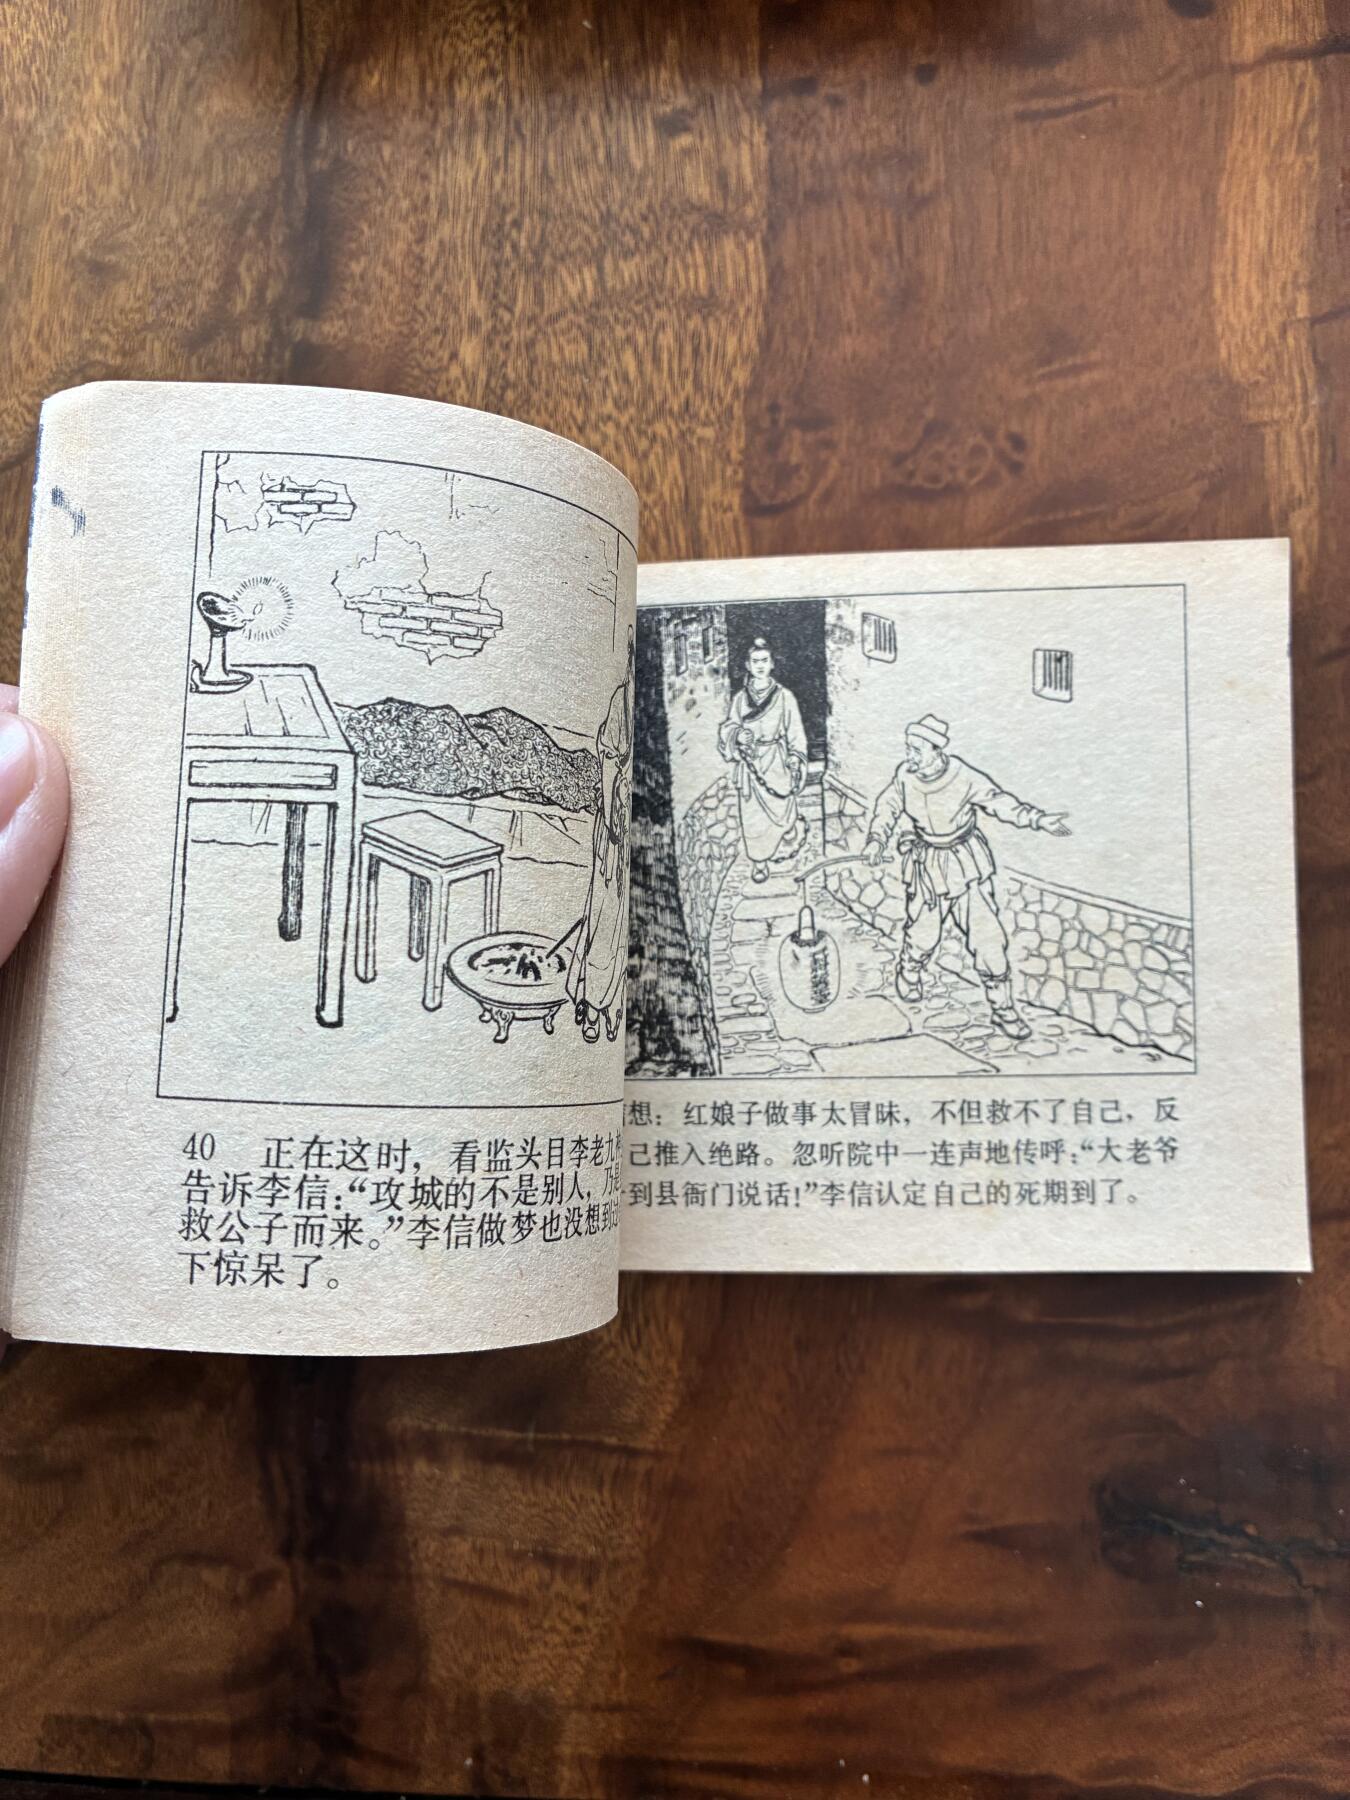 40 正在这时，看监头目李老九
告诉李信：“攻城的不是别人，乃是
救公子而来。”李信做梦也没想到
下惊呆了。
想：红娘子做事太冒昧，不但救不了自己，反
己推入绝路。忽听院中一连声地传呼：“大老爷
到县衙门说话！”李信认定自己的死期到了。